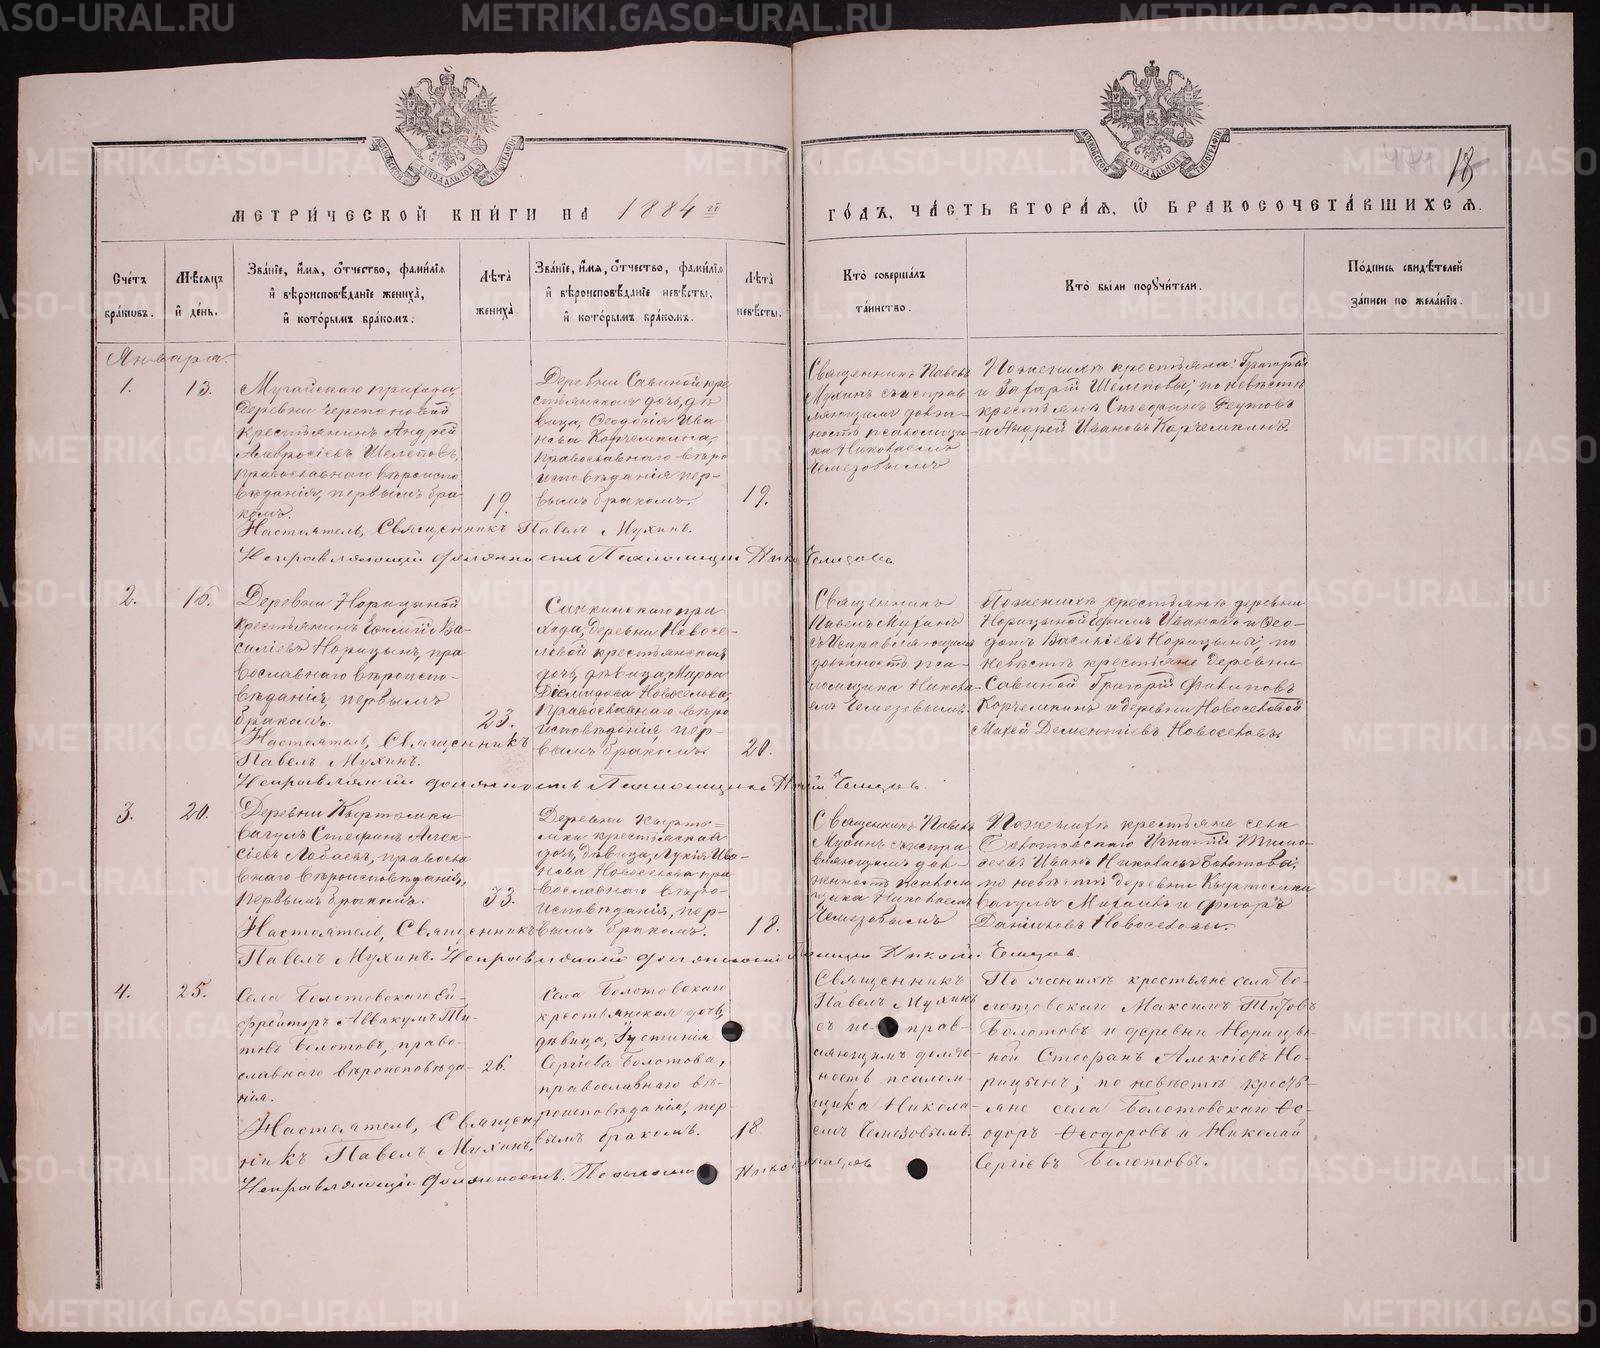 МЕТРИ́ЧЕСКОЙ КНИ́ГИ НА 1884 й
ГО́ДЪ, ЧА́СТЬ ВТОРА́Я, Ѽ БРАКОСОЧЕТА́ВШИХСЯ.
18
Сче́тъ бра́ковъ.
Мѣ́сяцъ и де́нь.
Зва́нїе, и́мя, о́тчество, фами́лїя
и вѣроисповѣ́данїе жениха̀,
и кото́рымъ бра́комъ.
Лѣ́та жениха̀.
Зва́нїе, и́мя, о́тчество, фами́лїя
и вѣроисповѣ́данїе невѣ́сты,
и кото́рымъ бра́комъ.
Лѣ́та невѣ́сты.
Кто̀ соверша́лъ
та́инство.
Кто̀ бы́ли поручи́тели.
По́дпись свидѣ́телей
за́писи по жела́нїю.
Января.
1.
13.
Мугайскаго прихода,
деревни Черепановой
крестьянинъ Андрей
Амвросіевъ Шелеповъ,
православнаго вѣроиспо
вѣданія, первымъ бра
комъ.
19.
Деревни Савиной кре
стьянская дочь, дѣ
вица, Ѳеодосія Ива
нова Корчемкина,
православнаго вѣро
исповѣданія пер-
вымъ бракомъ.
19.
Священникъ Павелъ
Мухинъ съ исправ
ляющимъ долж-
ность псаломщи
ка Николаемъ
Чемезовымъ
По женихѣ крестьяна: Григорій
и Захарій Шелеповы; по невѣстѣ
крестьяна Стефанъ Реутовъ
и Андрей Ивановъ Корчемкинъ.
Настоятель, Священникъ Павелъ Мухинъ.
Исправляющій должность Псаломщика Чемезовъ
2.
15.
Деревни Норицыной
крестьянинъ Ва-
силіевъ Норицынъ, пра
вославнаго вѣроиспо-
вѣданія, первымъ
бракомъ.
23.
Синкинскаго при
хода, деревни Новосе-
ловой крестьянская
дочь, дѣвица, Марья
Новоселова,
Православнаго вѣро
исповѣденія, пер-
вымъ бракомъ.
20.
Священникъ
Павелъ Мухинъ
съ Исправляющимъ
должность пса-
ломщика Никола
емъ Чемезовымъ.
По женихѣ крестьянѣ деревни
Норицыной Ивановъ и Ѳео-
дотъ Васильевъ Норицыны; по
невѣстѣ крестьяне деревни
Савиной Григорій Филиповъ
Корчемкинъ и деревни Новоселовой
Михей Дементіевъ Новоселовъ.
Настоятель, Священникъ
Павелъ Мухинъ.
Исправляющій должность Псаломщика Чемезовъ.
3.
20.
Деревни Кыртомки
Вагулъ Стефанъ Алек-
сіевъ Лобаевъ, правосла
внаго вѣроисповѣданія,
первымъ бракомъ.
33.
Деревни Кырто-
мки крестьянская
дочь, дѣвица, Лукія Ива-
нова Новоселова пра
вославнаго вѣро-
исповѣданія, пер-
вымъ бракомъ.
18.
Священникъ Павелъ
Мухинъ съ испра
вляющимъ дол-
жность псаломщика
Николаемъ
Чемезовымъ
По женихѣ крестьяне села
Болотовскаго Игнатій Тимо-
ѳеевъ Иванъ Николаевъ Болотовы;
по невѣстѣ деревни Кыртомки
вагулы Михаилъ и Флоръ
Даниловъ Новоселовы.
Настоятель, Священникъ
Павелъ Мухинъ. Исправляющій должность Чемезовъ.
4.
25.
Села Болотовскаго Ей-
фрейторъ Аввакумъ Ти-
товъ Болотовъ, право-
славнаго вѣроисповѣда-
нія.
26.
Села Болотовскаго
крестьянская дочь,
дѣвица, Іустинія
Сергіева Болотова,
православнаго вѣ-
роисповѣданія, пер-
вымъ бракомъ.
18
Священникъ
Павелъ Мухинъ
съ исправ-
ляющимъ долж-
ность псалом-
щика Никола-
емъ Чемезовымъ.
По женихѣ крестьяне села Бо-
лотовскаго Максимъ Титовъ
Болотовъ и деревни Норицы-
ной Стефанъ Алексіевъ Но-
рицынъ; по невѣстѣ кресть-
яне села Болотовскаго Ѳе-
одоръ Ѳеодоровъ и Николай
Сергіевъ Болотовы.
Настоятель, Священ-
никъ Павелъ Мухинъ.
Исправляющій должность